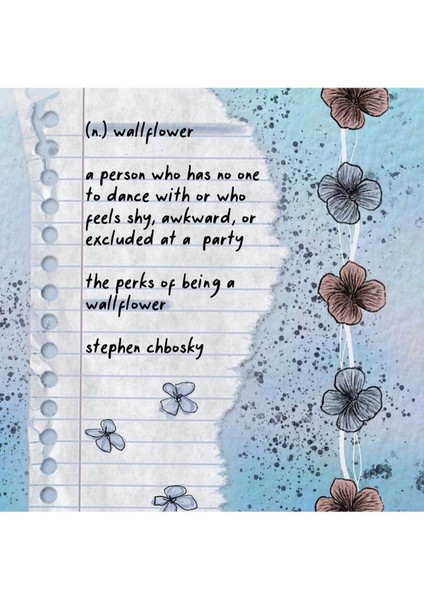 (n.) wallflower
a person who has no one
to dance with or who
feels shy, awkward, or
excluded at a party
the perks of being a
wallflower
stephen chbosky